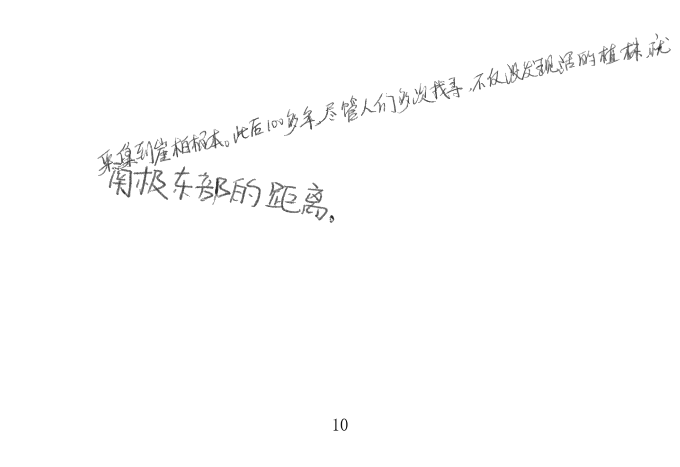 采集到崖柏标本。此后100多年,尽管人们多次找寻,不仅没发现活的植株,就
南极东部的距离。
10